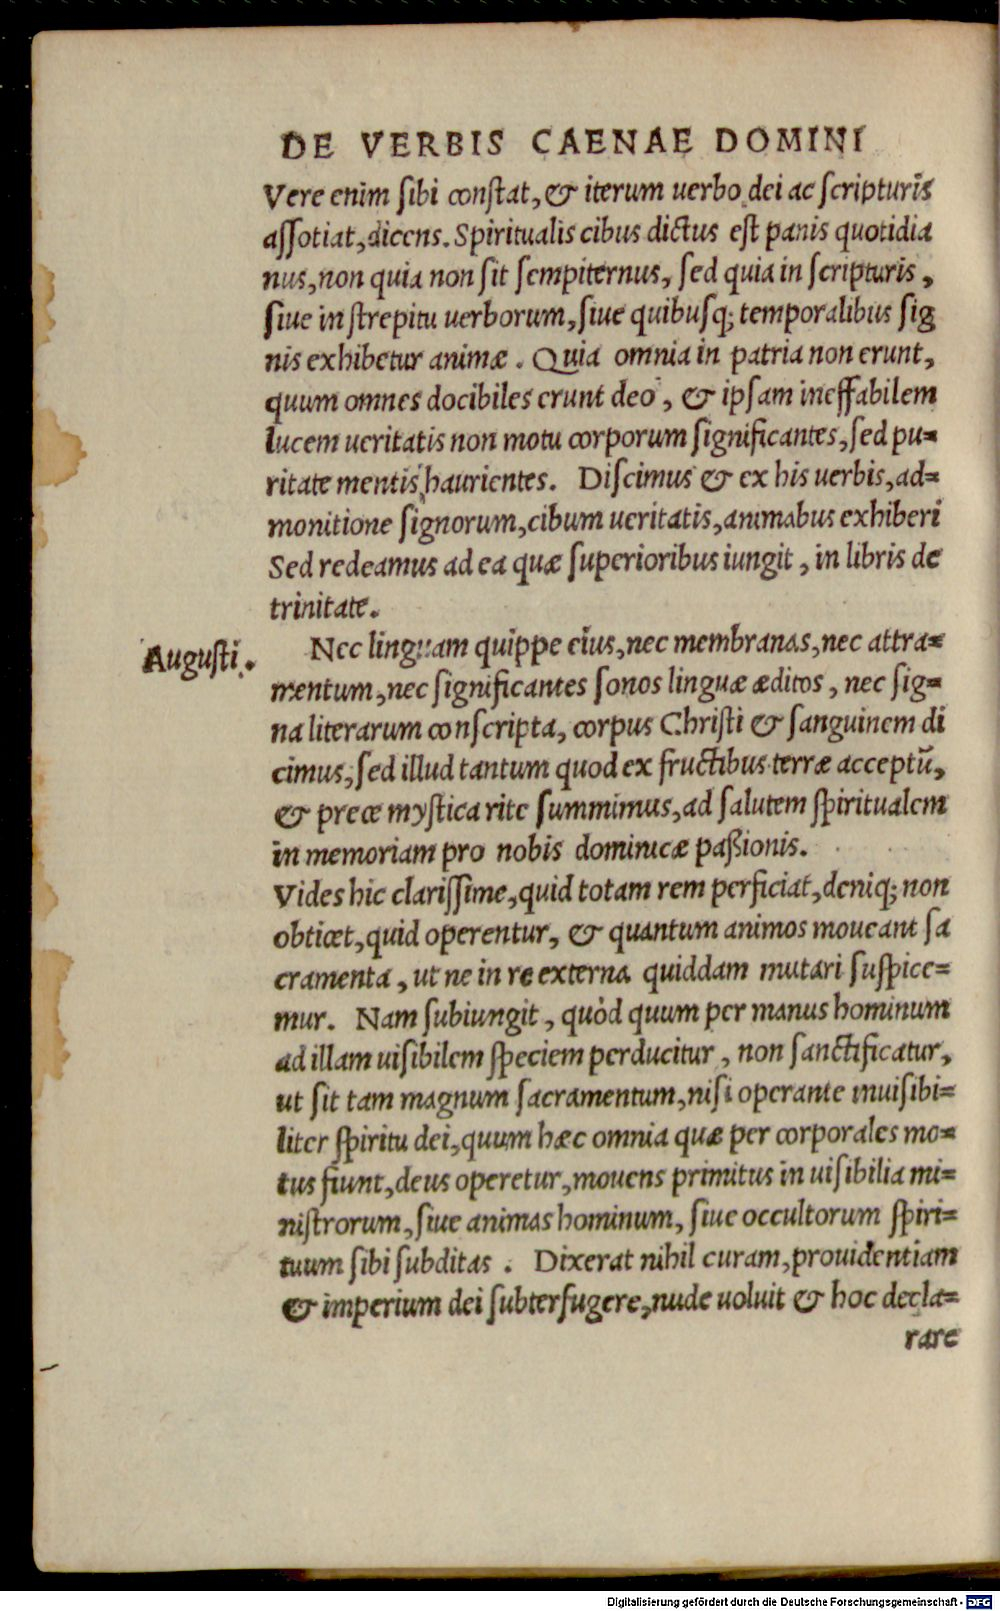 DE VERBIS CAENAE DOMINI
Vere enim sibi constat, & iterum uerbo dei ac scripturis
assotiat, dicens. Spiritualis cibus dictus est panis quotidia
nus, non quia non sit sempiternus, sed quia in scripturis,
siue in strepitu uerborum, siue quibusq; temporalibus sig
nis exhibetur animæ. Quia omnia in patria non erunt,
quum omnes docibiles erunt deo, & ipsam ineffabilem
lucem ueritatis non motu corporum significantes, sed pu=
ritate mentis haurientes. Discimus & ex his uerbis, ad=
monitione signorum, cibum ueritatis, animabus exhiberi
Sed redeamus ad ea quæ superioribus iungit, in libris de
trinitate.
Augusti.
Nec linguam quippe eius, nec membranas, nec attra=
mentum, nec significantes sonos linguæ æditos, nec sig=
na literarum conscripta, corpus Christi & sanguinem di
cimus, sed illud tantum quod ex fructibus terræ acceptū,
& prece mystica rite summimus, ad salutem spiritualem
in memoriam pro nobis dominicæ paßionis.
Vides hic clarissime, quid totam rem perficiat, deniq; non
obticet, quid operentur, & quantum animos moueant sa
cramenta, ut ne in re externa quiddam mutari suspice=
mur. Nam subiungit, quòd quum per manus hominum
ad illam uisibilem speciem perducitur, non sanctificatur,
ut sit tam magnum sacramentum, nisi operante inuisibi=
liter spiritu dei, quum hæc omnia quæ per corporales mo=
tus fiunt, deus operetur, mouens primitus in uisibilia mi=
nistrorum, siue animas hominum, siue occultorum spiri=
tuum sibi subditas. Dixerat nihil curam, prouidentiam
& imperium dei subterfugere, nude uoluit & hoc decla=
rare
Digitalisierung gefördert durch die Deutsche Forschungsgemeinschaft - DFG